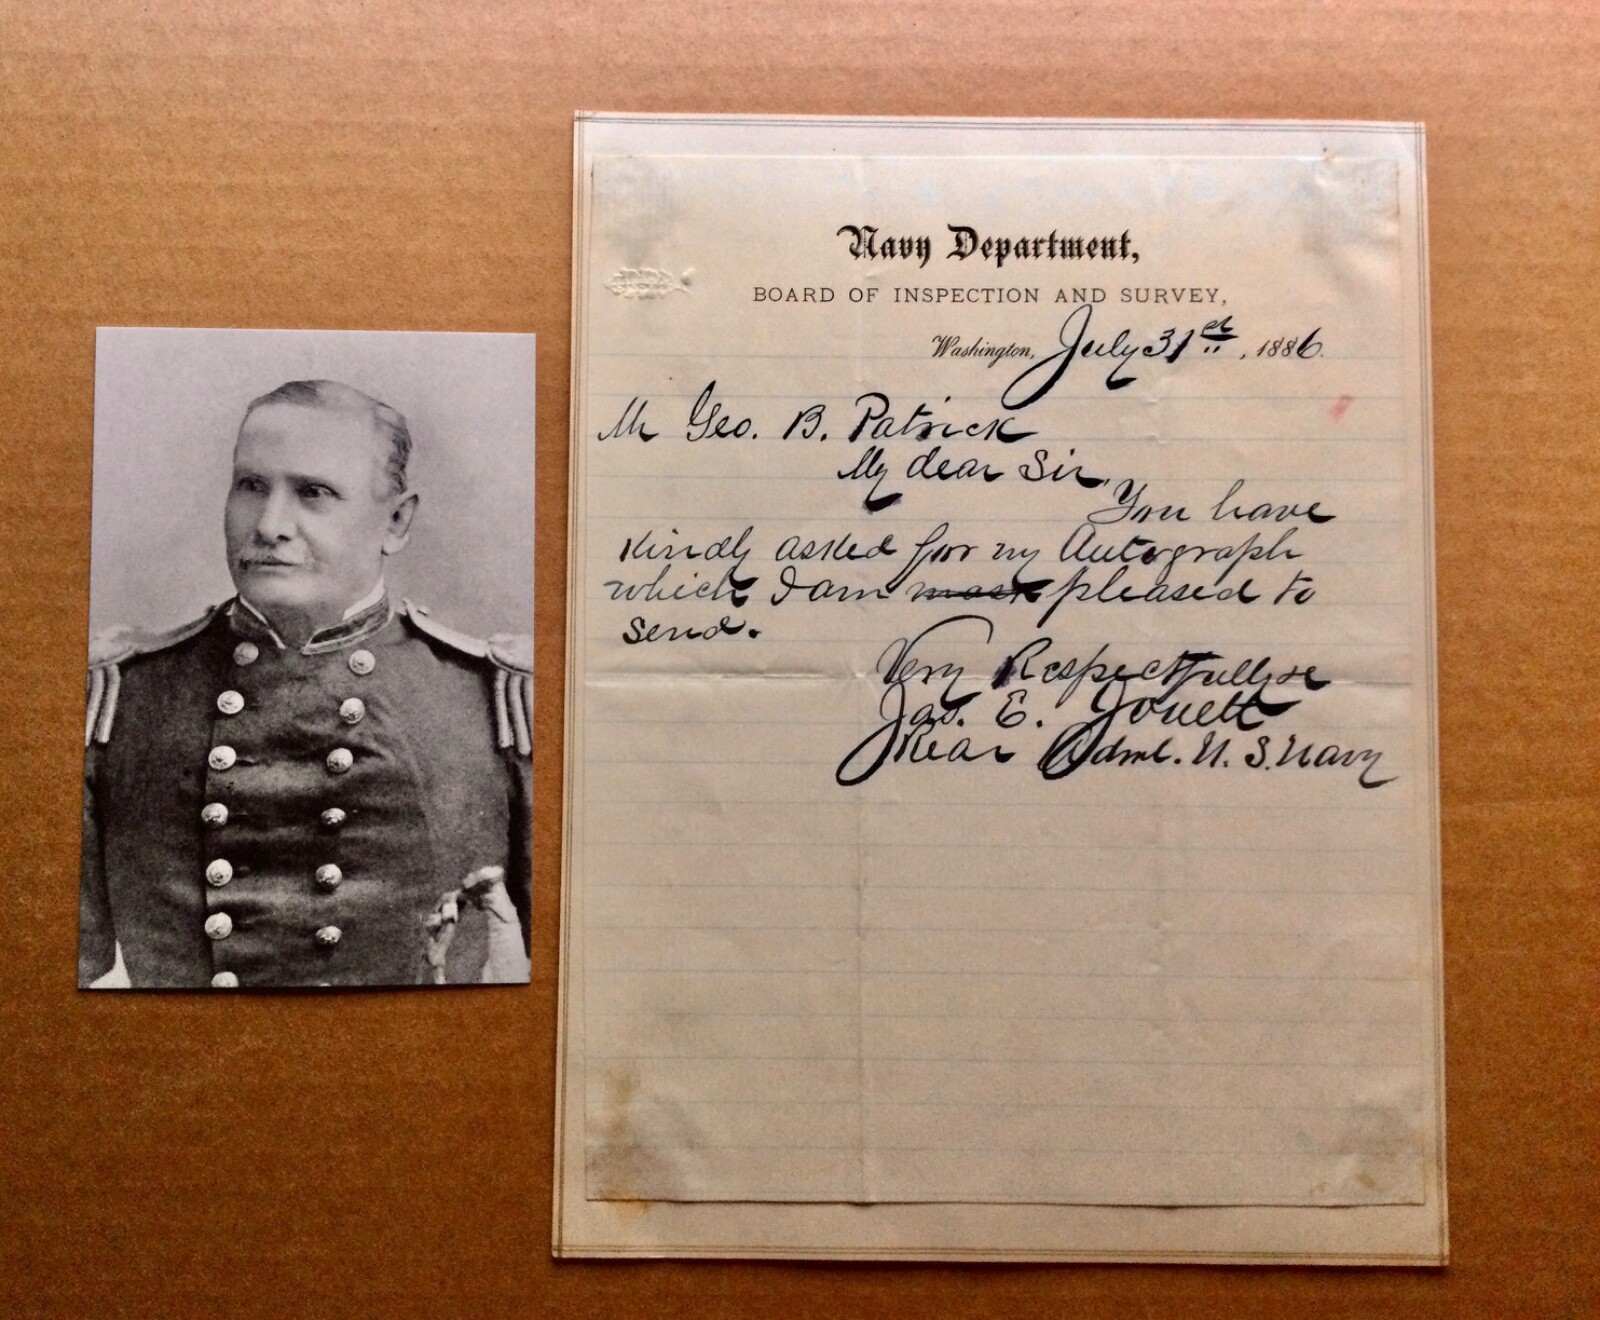 Navy Department,
BOARD OF INSPECTION AND SURVEY,
Washington, July 31st, 1886.
Mr Geo. B. Patrick
My dear Sir,
You have
kindly asked for my Autograph
which I am most pleased to
send.
Very Respectfully &c
Jas. E. Jouett
Rear Adml. U. S. Navy